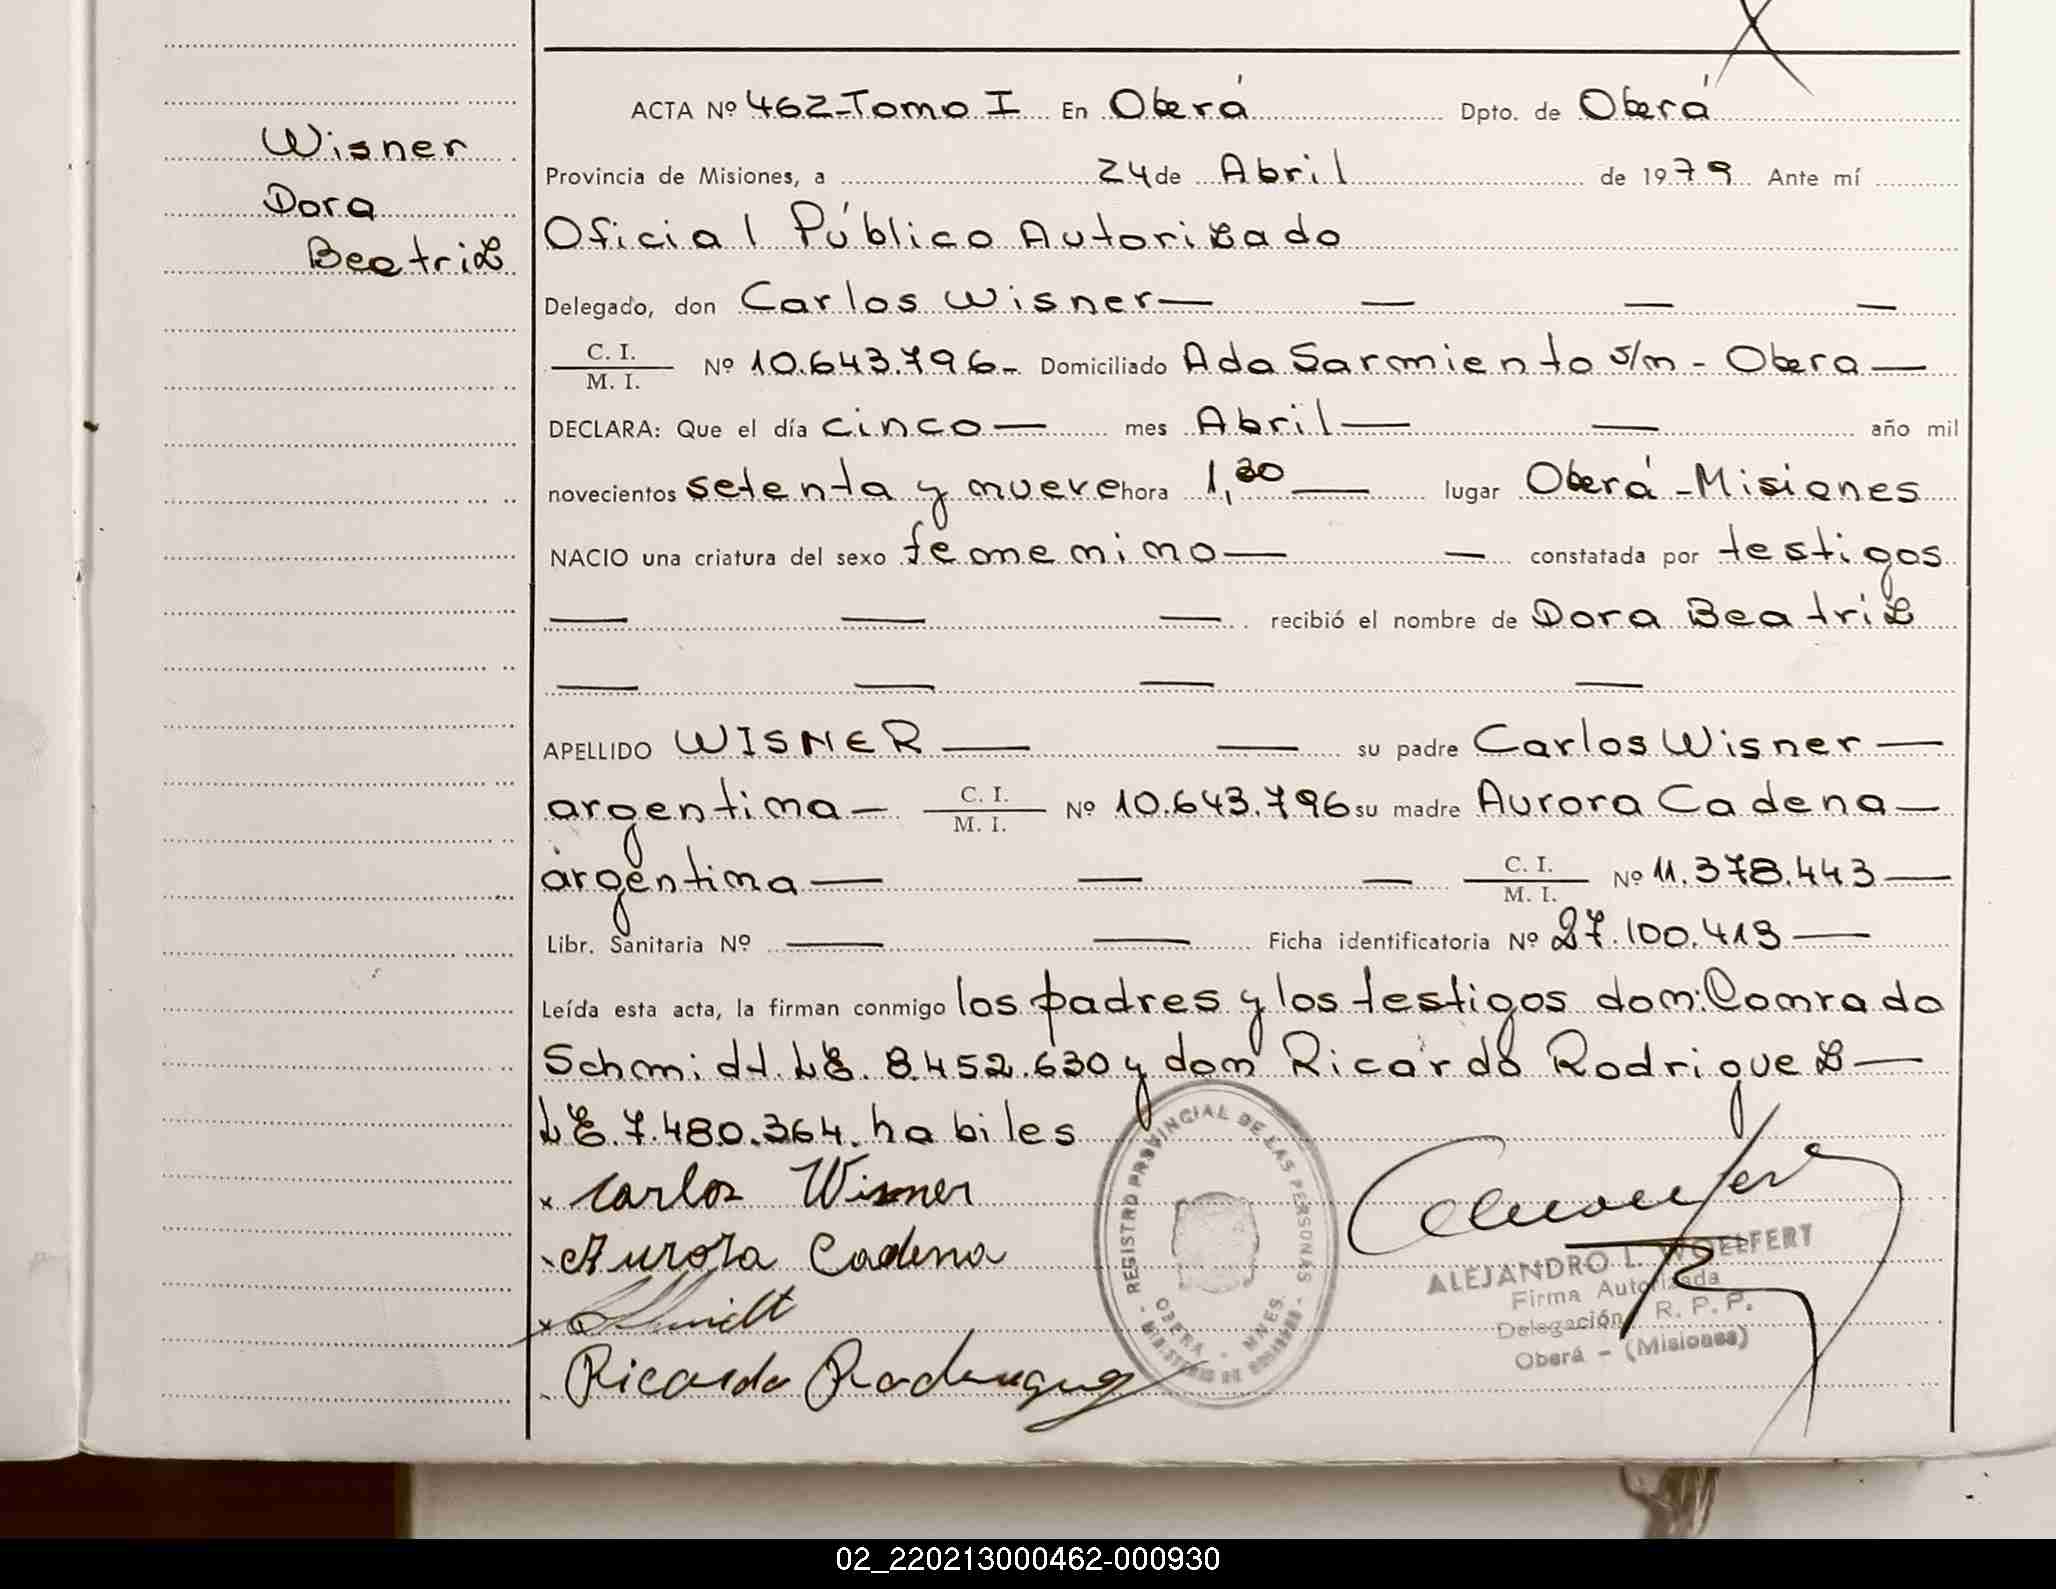 Wisner
Dora
Beatriz
ACTA Nº 462-Tomo I En Oberá Dpto. de Oberá
Provincia de Misiones, a 24 de Abril de 1979 Ante mí
Oficial Público Autorizado
Delegado, don Carlos Wisner — — — —
C. I. / M. I. Nº 10.643.796- Domiciliado Ada Sarmiento s/n - Obera —
DECLARA: Que el día cinco — mes Abril — — año mil
novecientos setenta y nueve hora 1,30 — lugar Oberá - Misiones
NACIO una criatura del sexo femenino — — constatada por testigos
— — — recibió el nombre de Dora Beatriz
— — — —
APELLIDO WISNER — — su padre Carlos Wisner —
argentina — C. I. / M. I. Nº 10.643.796 su madre Aurora Cadena —
argentina — — — C. I. / M. I. Nº 11.378.443 —
Libr. Sanitaria Nº — — Ficha identificatoria Nº 27.100.413 —
Leída esta acta, la firman conmigo los padres y los testigos don: Conrado
Schmidt. LE. 8.452.630 y don Ricardo Rodriguez —
LE. 7.480.364. habiles
x Carlos Wisner
Aurora Cadena
x Schmidt
Ricardo Rodriguez
REGISTRO PROVINCIAL DE LAS PERSONAS
OBERA - MNES.
MINISTERIO DE GOBIERNO
ALEJANDRO L. WOELFERT
Firma Autorizada
Delegación R. P. P.
Oberá - (Misiones)
02_220213000462-000930